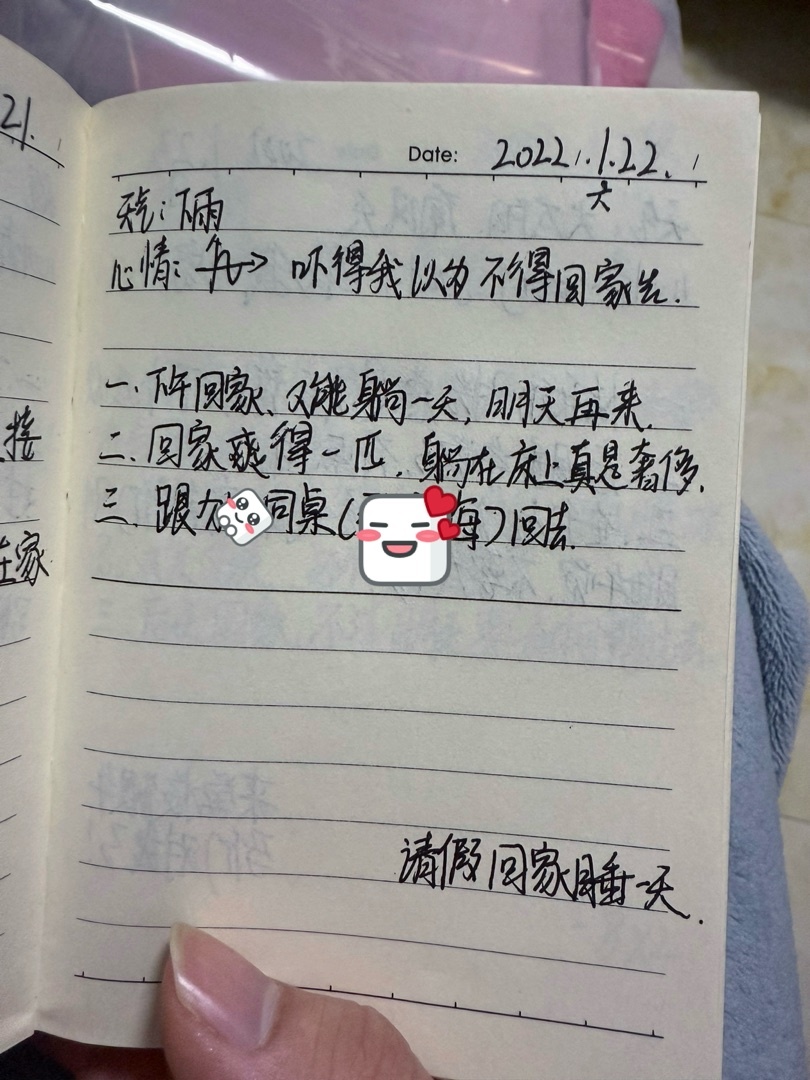 21.
接
在家
Date: 2022.1.22.
六
天气:下雨
心情: 吓得我以为不得回家去.
一.下午回家、又能躺一天,明天再来.
二.回家爽得一匹,躺在床上真是奢侈.
三.跟 同桌( 海)回去.
请假回家睡一天.